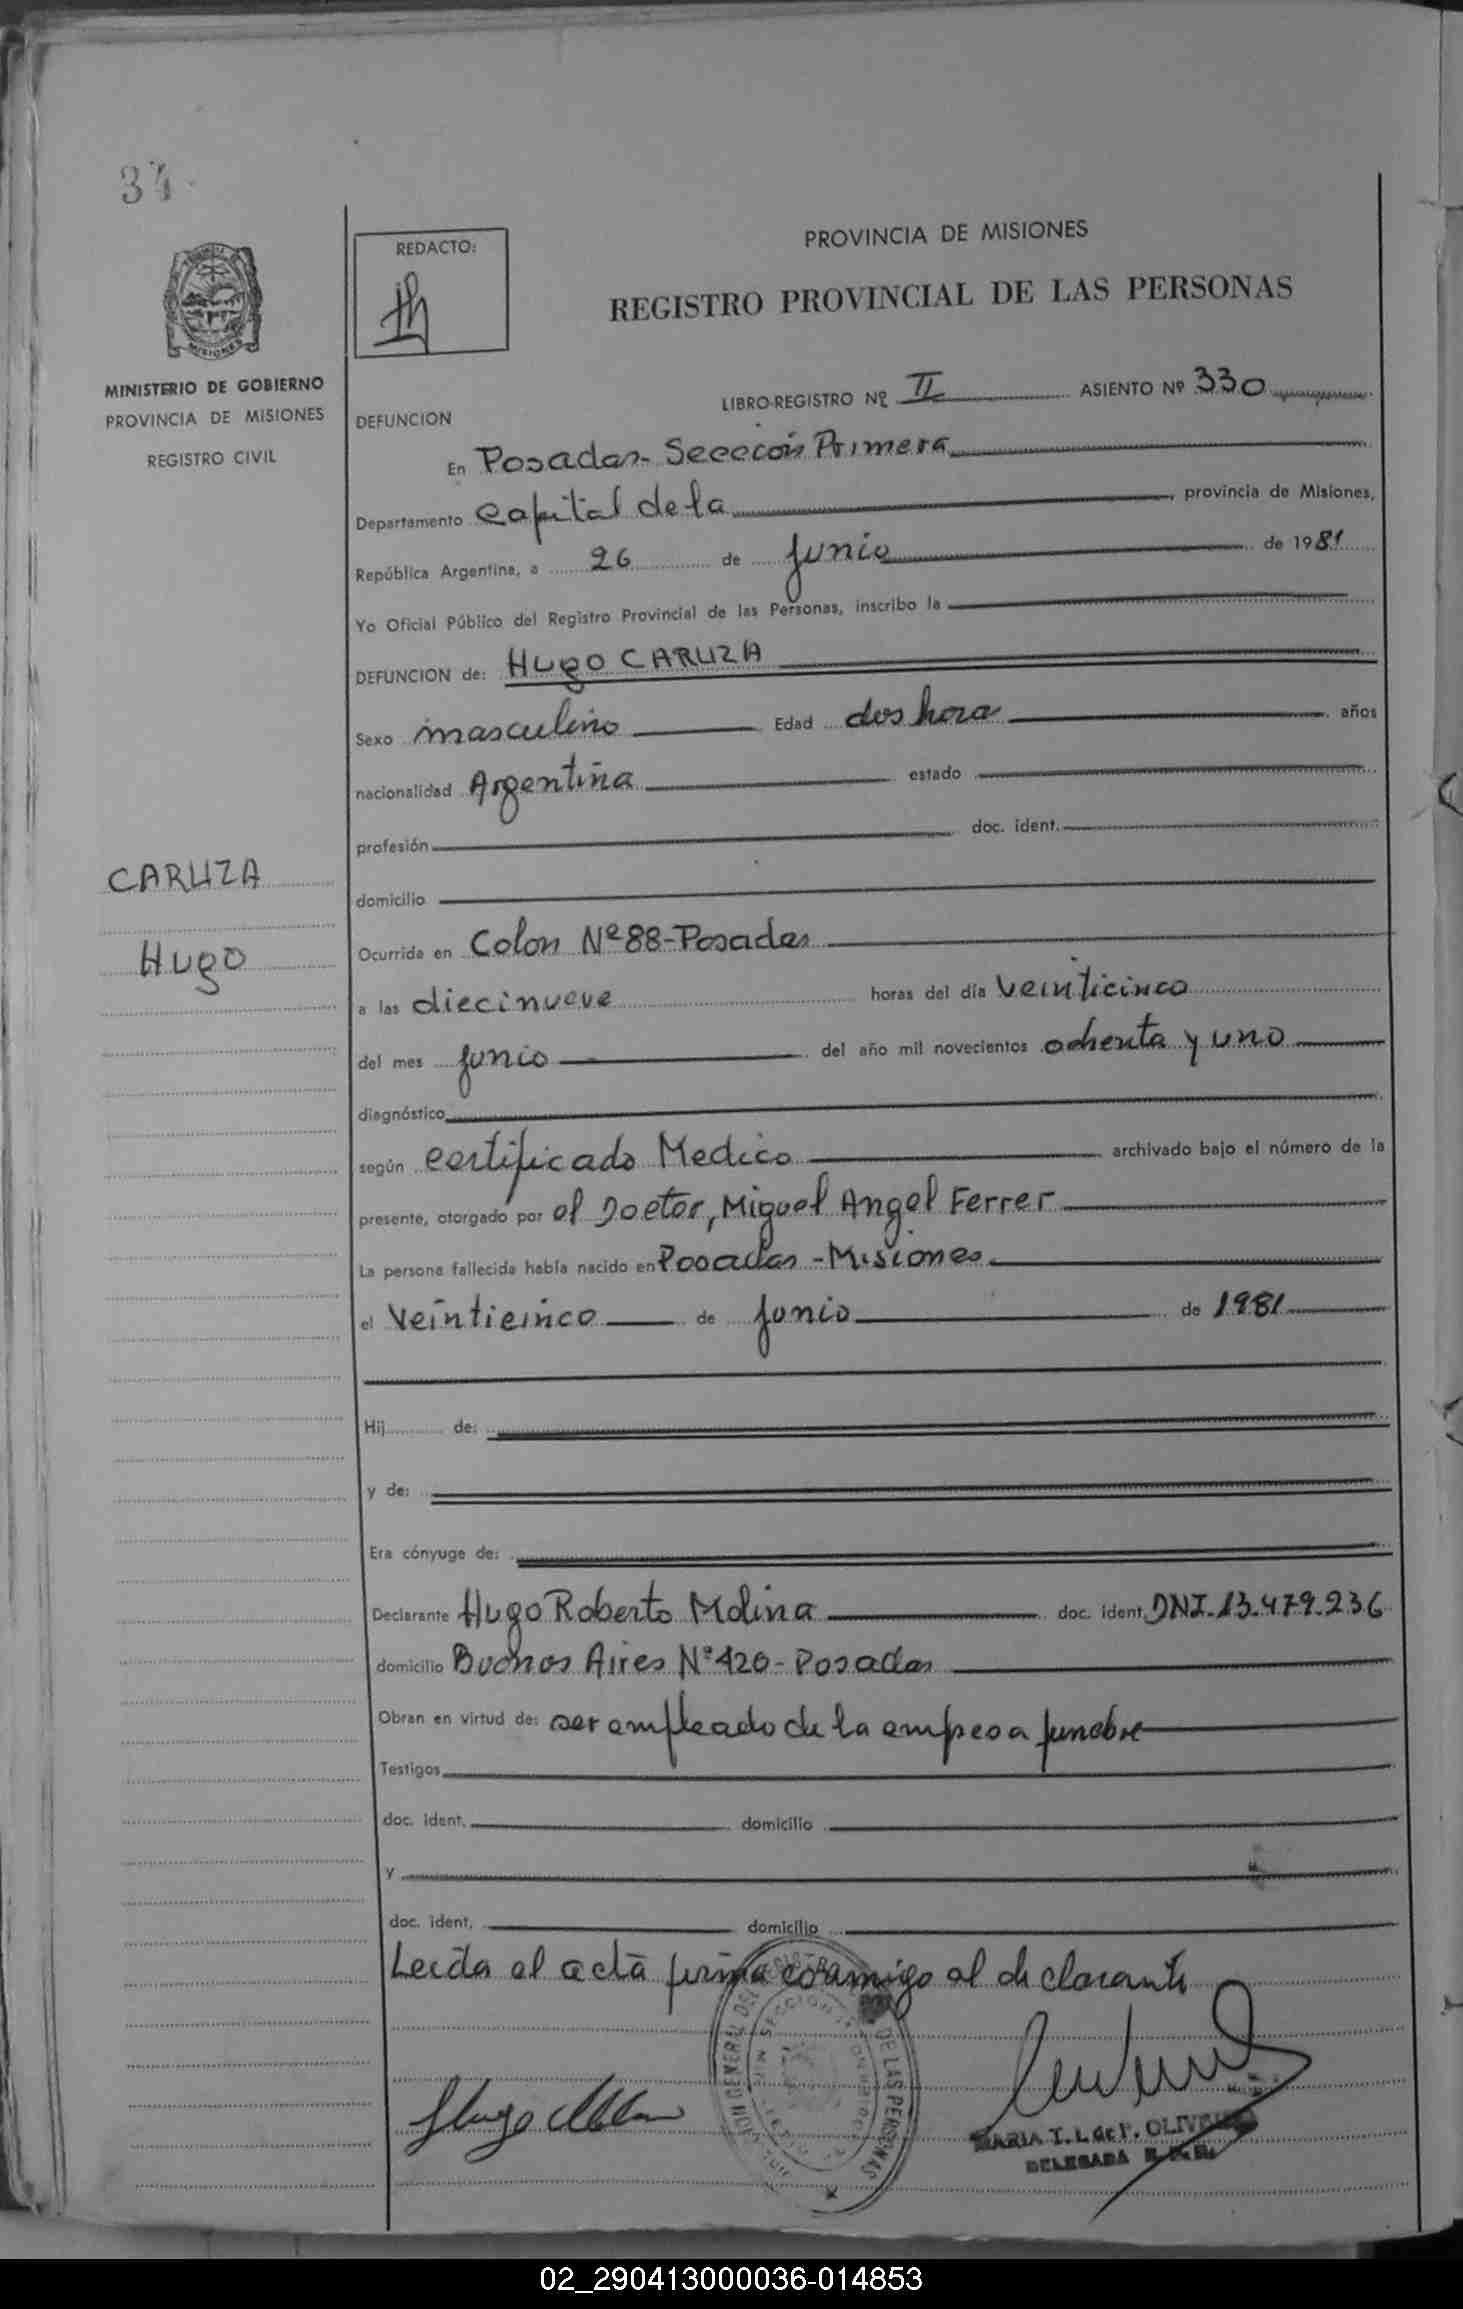 34
REDACTO:
PROVINCIA DE MISIONES
REGISTRO PROVINCIAL DE LAS PERSONAS
MISIONES
MINISTERIO DE GOBIERNO
PROVINCIA DE MISIONES
REGISTRO CIVIL
LIBRO-REGISTRO Nº II ASIENTO Nº 330
DEFUNCION
En Posadas- Sección Primera
Departamento Capital de la, provincia de Misiones,
República Argentina, a 26 de junio de 1981
Yo Oficial Público del Registro Provincial de las Personas, inscribo la
DEFUNCION de: Hugo CARUZA
Sexo masculino Edad dos hora años
nacionalidad Argentina estado
profesión doc. ident.
CARUZA
domicilio
Hugo
Ocurrida en Colon Nº 88-Posadas
a las diecinueve horas del día veinticinco
del mes junio del año mil novecientos ochenta y uno
diagnóstico
según certificado Medico archivado bajo el número de la
presente, otorgado por el Doctor, Miguel Angel Ferrer
La persona fallecida había nacido en Posadas - Misiones
el Veinticinco de junio de 1981
Hij de:
y de:
Era cónyuge de:
Declarante Hugo Roberto Molina doc. ident. DNI-13.479.236
domicilio Buenos Aires Nº 420- Posadas
Obran en virtud de: ser empleado de la empresa funebre
Testigos
doc. ident. domicilio
y
doc. ident. domicilio
Leida el acta firma conmigo el declarante
DE LAS PERSONAS
MARIA T. L. de P. OLIVEIRA
DELEGADA
02_290413000036-014853